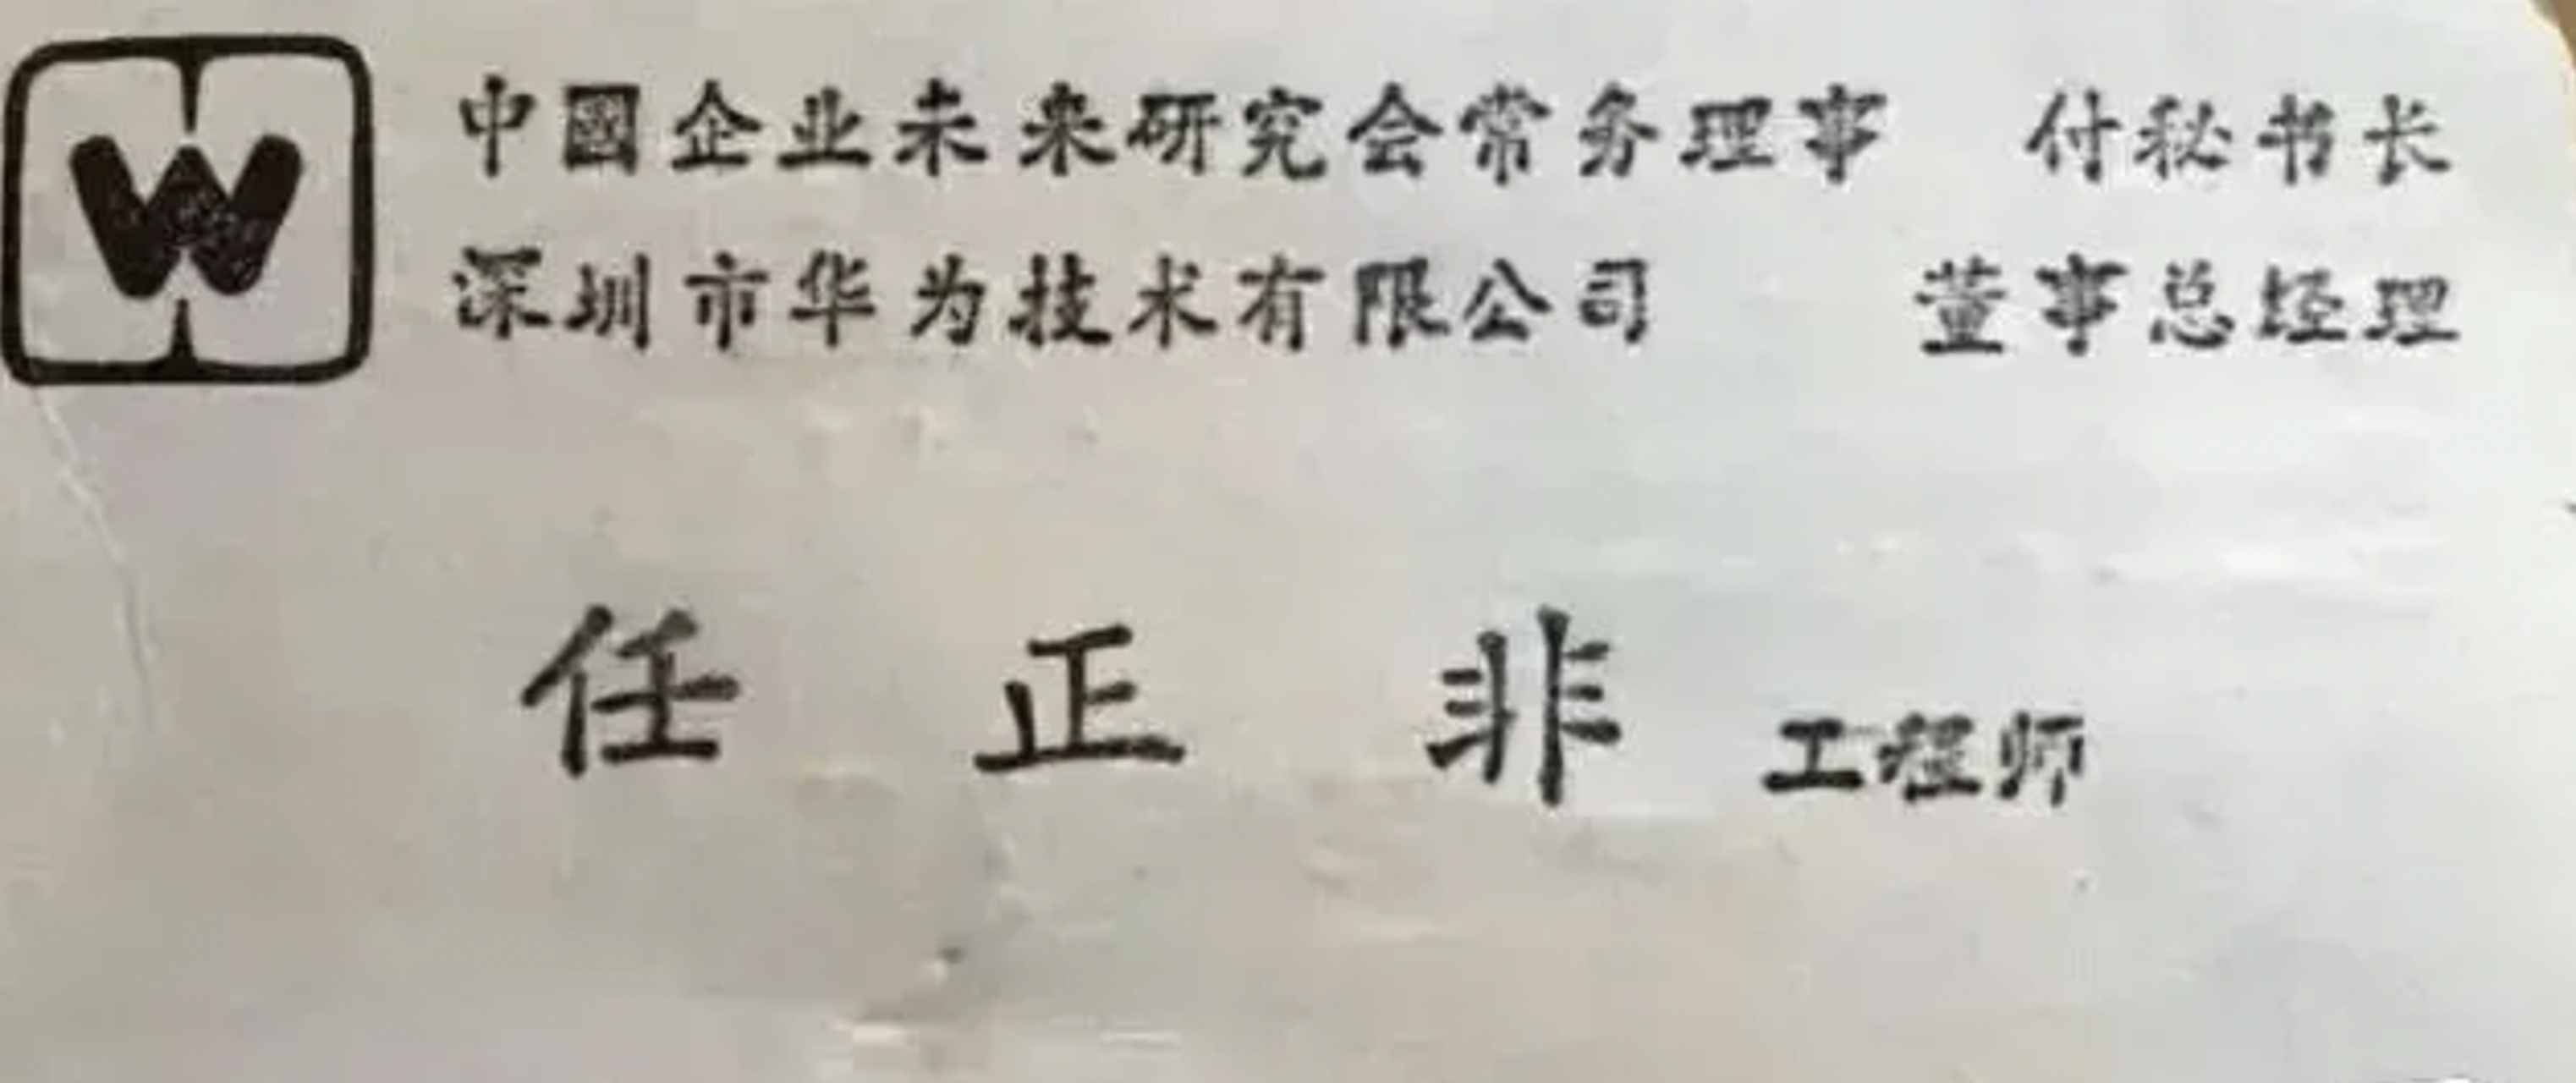 W
中國企业未来研究会常务理事 付秘书长
深圳市华为技术有限公司 董事总经理
任正非 工程师